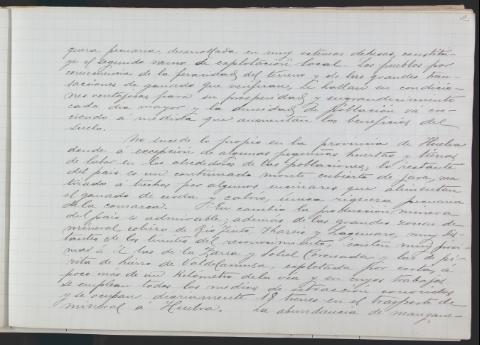 quera pecuaria, desarrollada en muy estensas dehesas, constitu-
ye el segundo ramo de esplotacion local. Los pueblos por
consecuencia de la feracidad del terreno y de las grandes tran-
sacciones de ganado que verifican, se hallan en condicio-
nes ventajosas para su prosperidad y engrandecimiento
cada dia mayor y la densidad de Poblacion va cre-
ciendo á medida que aumentan los beneficios del
suelo.
No sucede lo propio en la provincia de Huelva
donde á escepcion de algunas pequeñas huertas y tierras
de labor en los alrededores de las poblaciones, lo restante
del pais es un continuado monte cubierto de jara, ma-
tizado á trechos por algunos encinares que alimentan
el ganado de cerda y cabrio, unica riqueza pecuaria
de la comarca. En cambio la produccion minera
del pais es admirable; además de las grandes zonas de
mineral cobrizo de Rio Tinto, Tharsis y Zaguazo, muy dis-
tantes de los limites del reconocimiento, existen muy proxi-
mas á él las de la Zarza y Sotiel Coronada y las de pi-
rita de hierro de Valdelamusa, esplotada por contar á
poco más de un Kilómetro de la via y en cuyos trabajos
se emplean todos los medios de estraccion conocidos
y se ocupan diariamente 18 trenes en el trasporte de
mineral á Huelva. La abundancia de mangane-